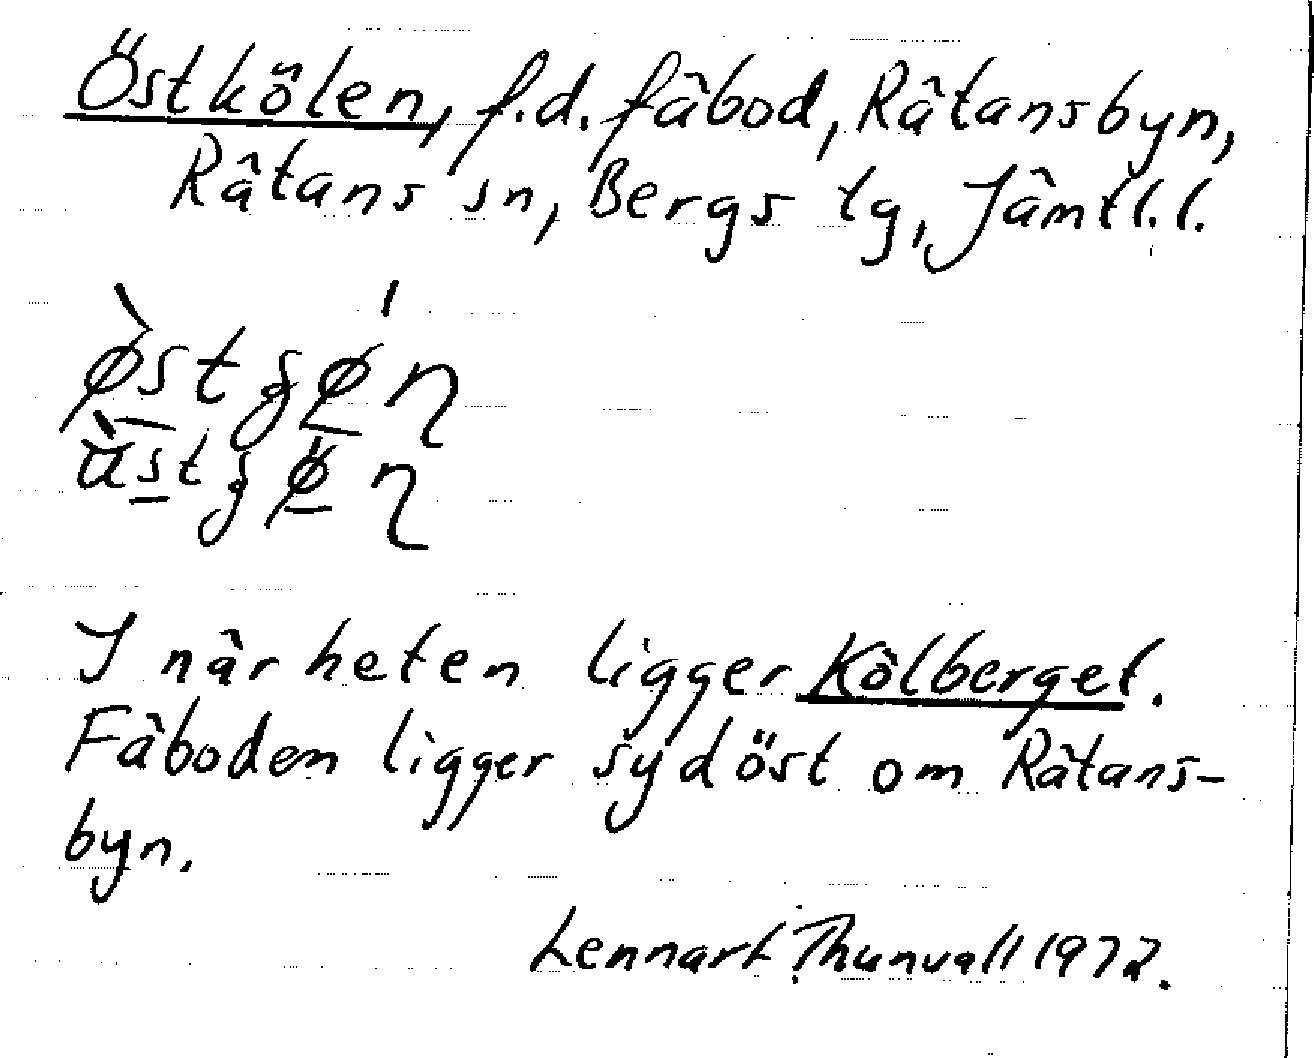 Östkölen, f.d. fäbod, Rätansbyn,
Rätans sn, Bergs tg, Jämtl.l.
I närheten ligger Kölberget.
Fäboden ligger sydöst om Rätans-
byn.
Lennart Thunvall 1972.